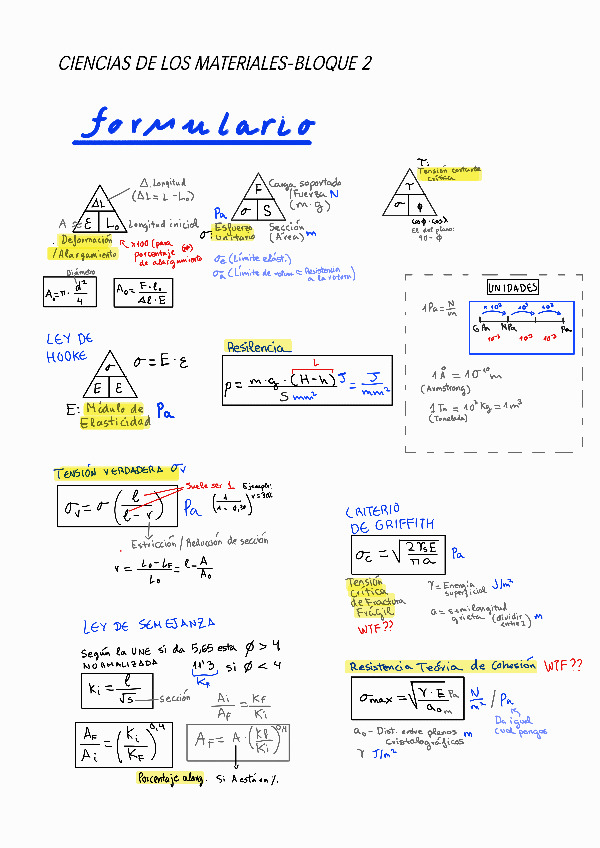 CIENCIAS DE LOS MATERIALES-BLOQUE 2
formulario
ΔL
E L₀
Δ. Longitud
(ΔL = L - L₀)
Longitud inicial
Deformación
/Alargamiento
x100 (para
porcentaje (%)
de alargamiento
Diámetro
A₀ = π · d²/4
A₀ = F · l₀ / Δl · E
F
σ S
Carga soportada
/Fuerza N
(m · g)
Pa
σ: Esfuerzo
unitario
Sección
(Área) m
σE (Límite elást.)
σR (Límite de rotura = Resistencia
a la rotura)
τ: Tensión cortante
crítica
τ
σ ϕ
cosϕ · cosλ
El del plano:
90 - ϕ
UNIDADES
1 Pa = N/m
x 10³ 10³ 10³
G Pa M Pa Pa
10⁻³ 10⁻³ 10⁻³
1 Å = 10⁻¹⁰ m
(Armstrong)
1 Tn = 10³ Kg = 1 m³
(Tonelada)
LEY DE
HOOKE
σ
E ε
σ = E · ε
E: Módulo de
Elasticidad Pa
Resilencia
L
ρ = m · g · (H - h) / S mm² J = J/mm²
TENSIÓN VERDADERA σv
σv = σ (l / l - r) Pa
Suele ser 1
Ejemplo:
r = 30%
(1 / 1 - 0,30)
Estricción / Reducción de sección
r = L₀ - LF / L₀ = 1 - A/A₀
CRITERIO
DE GRIFFITH
σc = √(2γsE / πa) Pa
Tensión
crítica
de Fractura
Frágil
WTF??
γ = Energía
superficial J/m²
a = semilongitud
grieta (dividir
entre 2) m
LEY DE SEMEJANZA
Según la UNE si da 5,65 esta ϕ > 4
NORMALIZADA 11'3 si ϕ < 4
KF
Ki = l / √S
sección
Ai/AF = KF/Ki
AF/Ai = (Ki/KF)^0,4
AF = A · (KF/Ki)^0,4
Porcentaje alarg. Si A está en %.
Resistencia Teória de Cohesión WTF??
σmax = √(γ · E Pa / a₀ m) N/m² / Pa
Da igual
cual pongas
a₀ - Dist. entre planos m
cristalográficos
γ J/m²